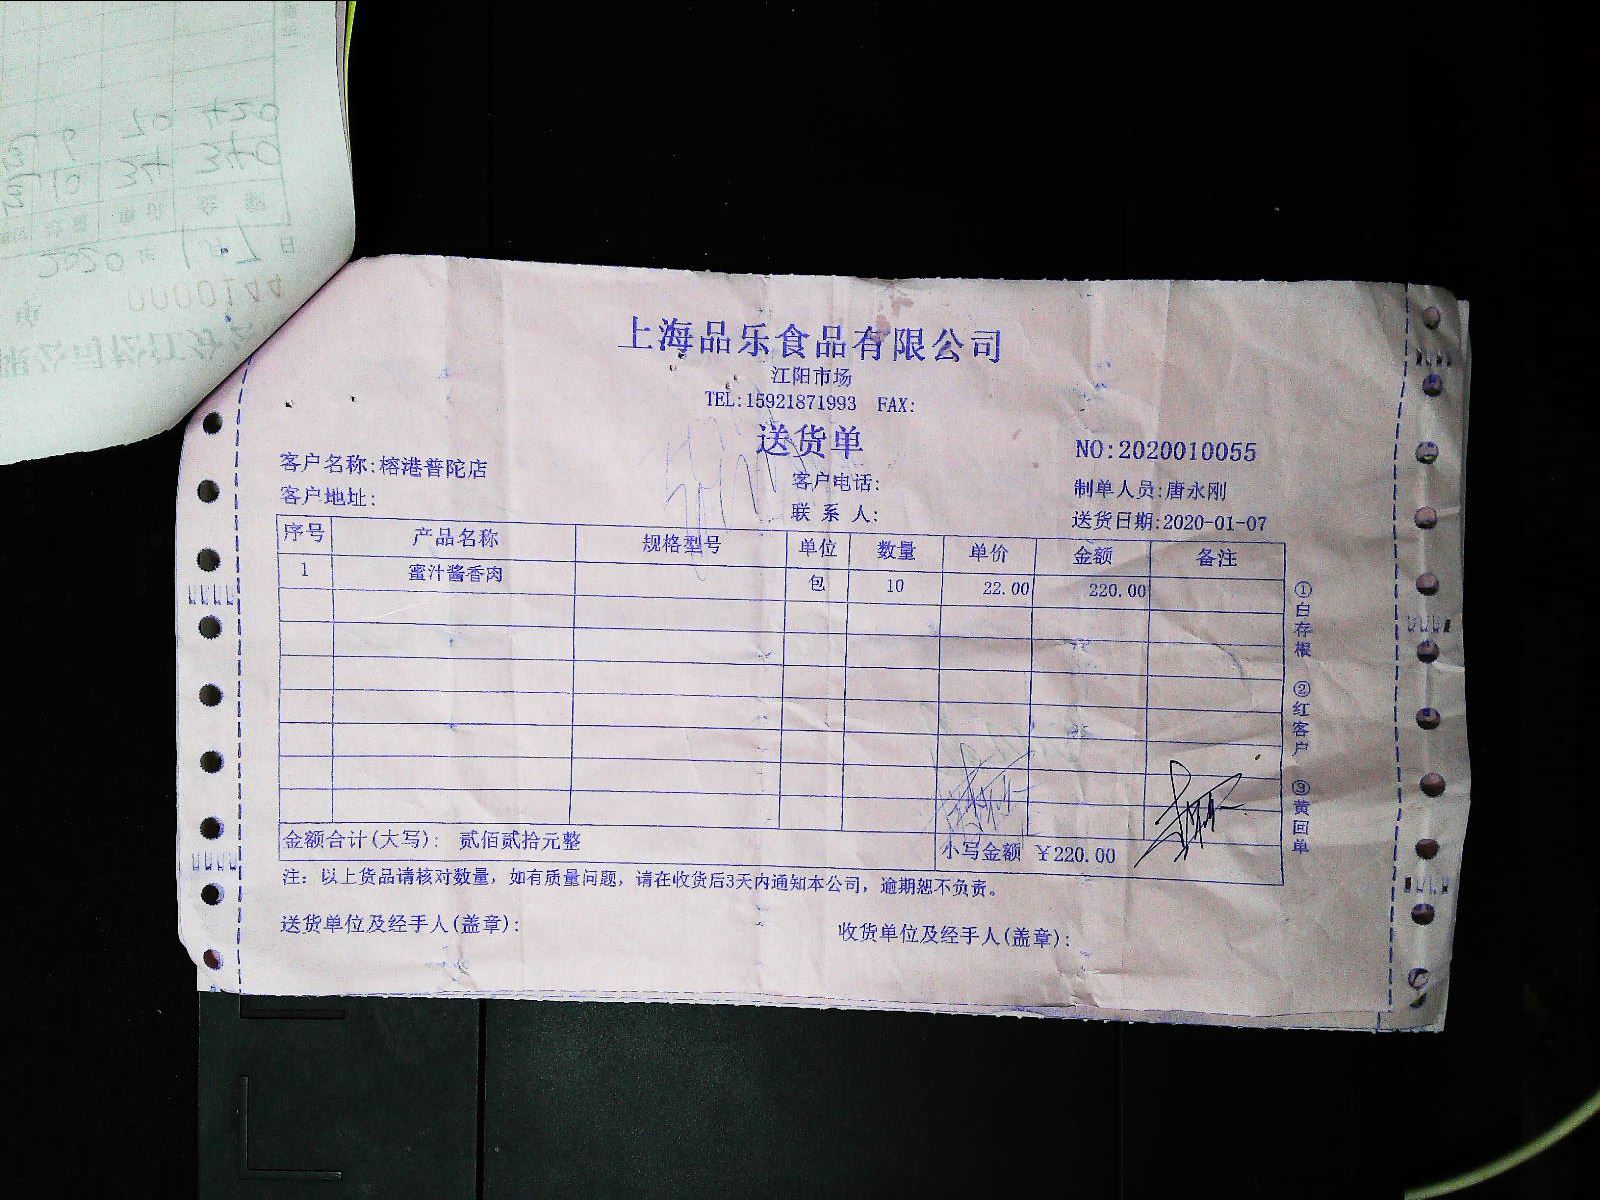 上海品乐食品有限公司
江阳市场
TEL:15921871993 FAX:
送货单
NO:2020010055
客户名称:榕港普陀店
客户电话:
制单人员:唐永刚
客户地址:
联系人:
送货日期:2020-01-07
序号 产品名称 规格型号 单位 数量 单价 金额 备注
1 蜜汁酱香肉 包 10 22.00 220.00
金额合计(大写): 贰佰贰拾元整 小写金额 ¥220.00
注: 以上货品请核对数量, 如有质量问题, 请在收货后3天内通知本公司, 逾期恕不负责。
送货单位及经手人(盖章):
收货单位及经手人(盖章):
①白存根 ②红客户 ③黄回单
0000144
2020年1月7日
数量 单价 金额
10 34 340
6 70 420